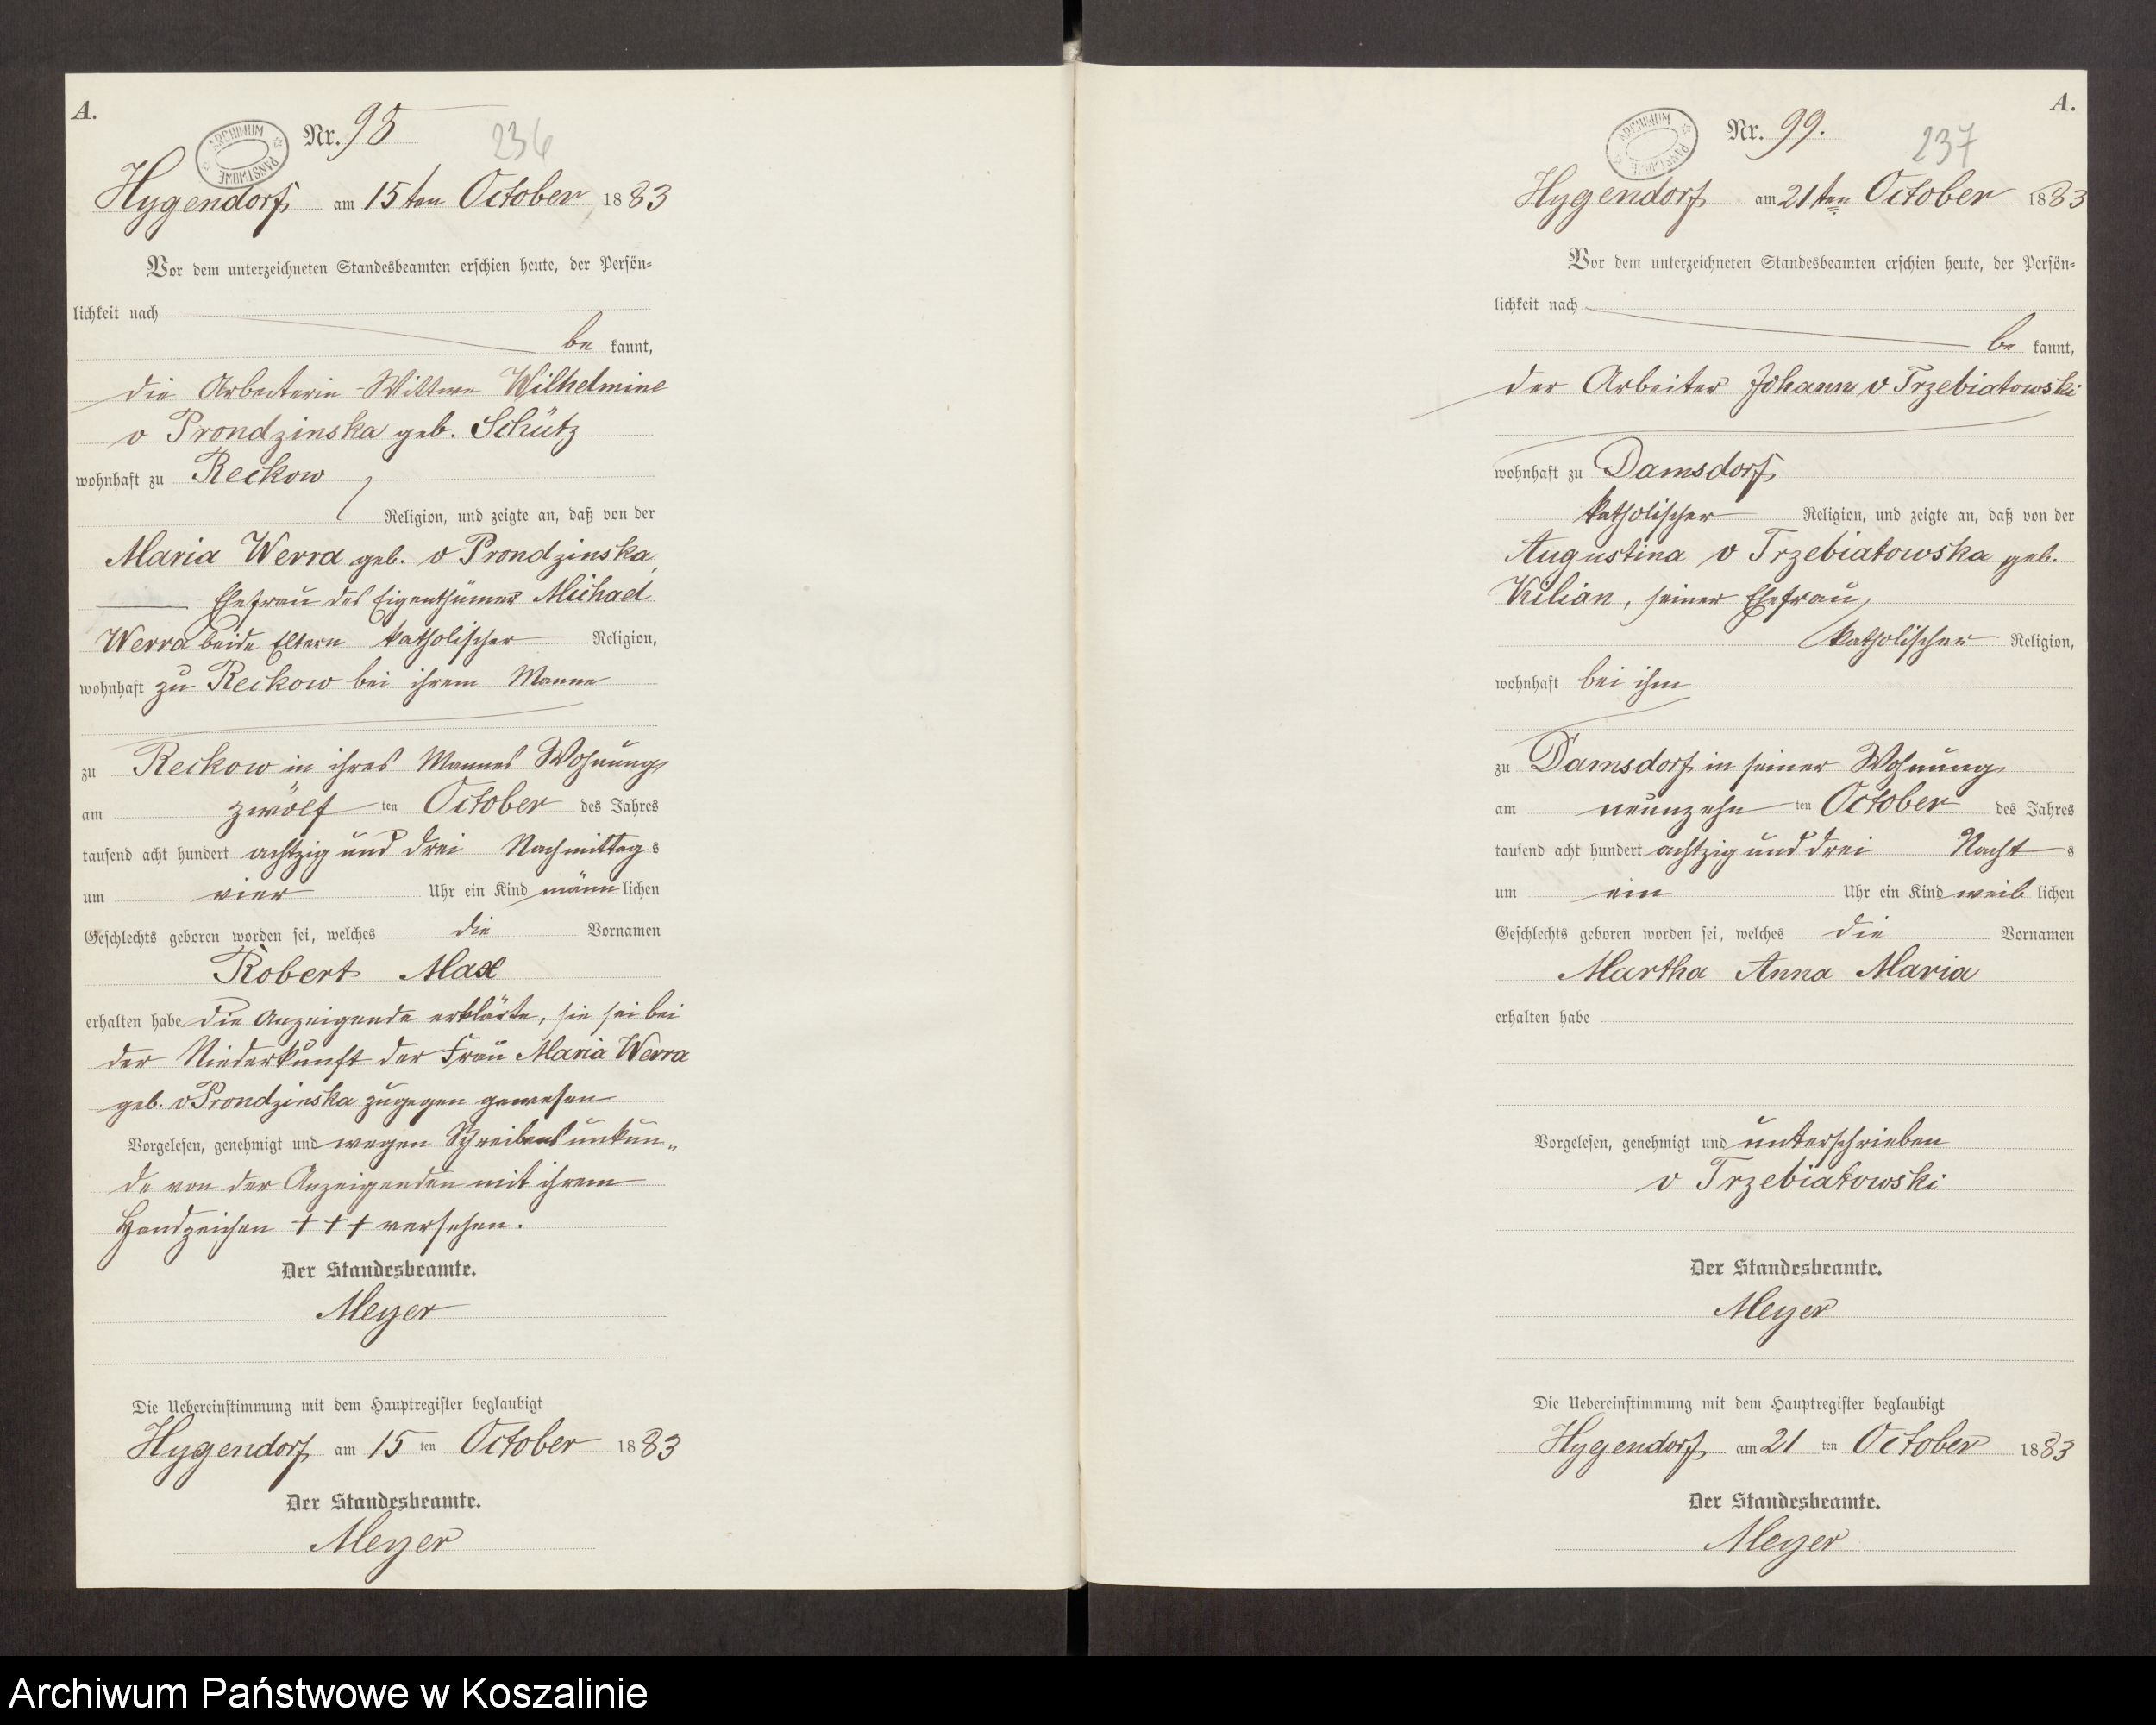 A.
ARCHIWUM PAŃSTWOWE
Nr. 98
236
Hygendorf am 15ten October 1883
Vor dem unterzeichneten Standesbeamten erschien heute, der Persön-
lichkeit nach
be kannt,
die Arbeiterin-Wittwe Wilhelmine
v Prondzinska geb. Schütz
wohnhaft zu Reckow
Religion, und zeigte an, daß von der
Maria Werra geb. v Prondzinska,
Ehefrau des Eigenthümers Michael
Werra beide Eltern katholischer Religion,
wohnhaft zu Reckow bei ihrem Manne
zu Reckow in ihres Mannes Wohnung
am zwölf ten October des Jahres
tausend acht hundert achtzig und drei Nachmittag s
um vier Uhr ein Kind männ lichen
Geschlechts geboren worden sei, welches die Vornamen
Robert Max
erhalten habe die Anzeigende erklärte, sie sei bei
der Niederkunft der Frau Maria Werra
geb. v Prondzinska zugegen gewesen
Vorgelesen, genehmigt und wegen Schreibensunkun„
de von der Anzeigenden mit ihrem
Handzeichen +++ versehen.
Der Standesbeamte.
Meyer
Die Uebereinstimmung mit dem Hauptregister beglaubigt
Hygendorf am 15 ten October 1883
Der Standesbeamte.
Meyer
A.
ARCHIWUM PAŃSTWOWE
Nr. 99.
237
Hygendorf am 21ten October 1883
Vor dem unterzeichneten Standesbeamten erschien heute, der Persön-
lichkeit nach
be kannt,
der Arbeiter Johann v Trzebiatowski
wohnhaft zu Damsdorf
katholischer Religion, und zeigte an, daß von der
Augustina v Trzebiatowska geb.
Kilian, seiner Ehefrau,
katholischer Religion,
wohnhaft bei ihm
zu Damsdorf in seiner Wohnung
am neunzehn ten October des Jahres
tausend acht hundert achtzig und drei Nacht s
um ein Uhr ein Kind weib lichen
Geschlechts geboren worden sei, welches die Vornamen
Martha Anna Maria
erhalten habe
Vorgelesen, genehmigt und unterschrieben
v Trzebiatowski
Der Standesbeamte.
Meyer
Die Uebereinstimmung mit dem Hauptregister beglaubigt
Hygendorf am 21 ten October 1883
Der Standesbeamte.
Meyer
Archiwum Państwowe w Koszalinie